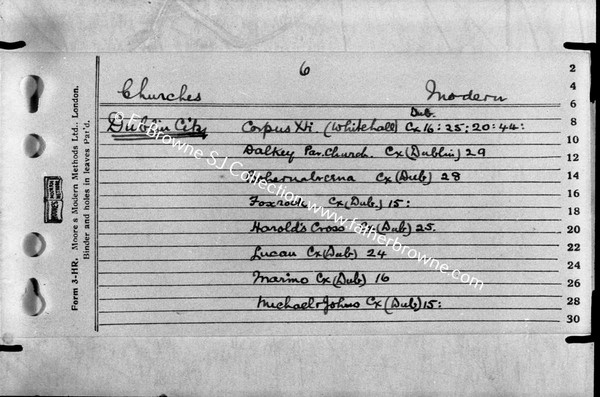 6
Churches Modern
Dublin City Corpus Xti. (Whitehall) Dub. Cx 16: 25; 20: 44:
Dalkey Par. Church. Cx (Dublin) 29
Cx (Dub) 28
Foxrock Cx (Dub.) 15:
Harold's Cross Cx (Dub) 25.
Lucan Cx (Dub) 24
Marino Cx (Dub) 16
Michael & Johns Cx (Dub) 15:
2
4
6
8
10
12
14
16
18
20
22
24
26
28
30
Form 3-HR. Moore's Modern Methods Ltd., London.
Binder and holes in leaves Pat'd.
© Fr Browne S J Collection www.fatherbrowne.com